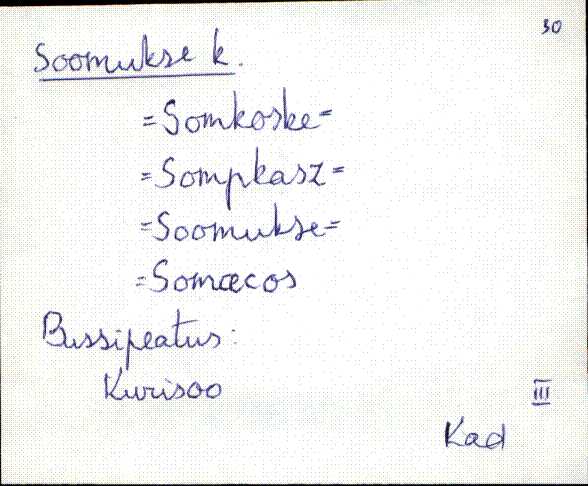 30
Soomukse k.
=Somkoske=
=Sompkasz=
=Soomukse=
=Somæcos
Bussipeatus:
Kurisoo
III
Kad